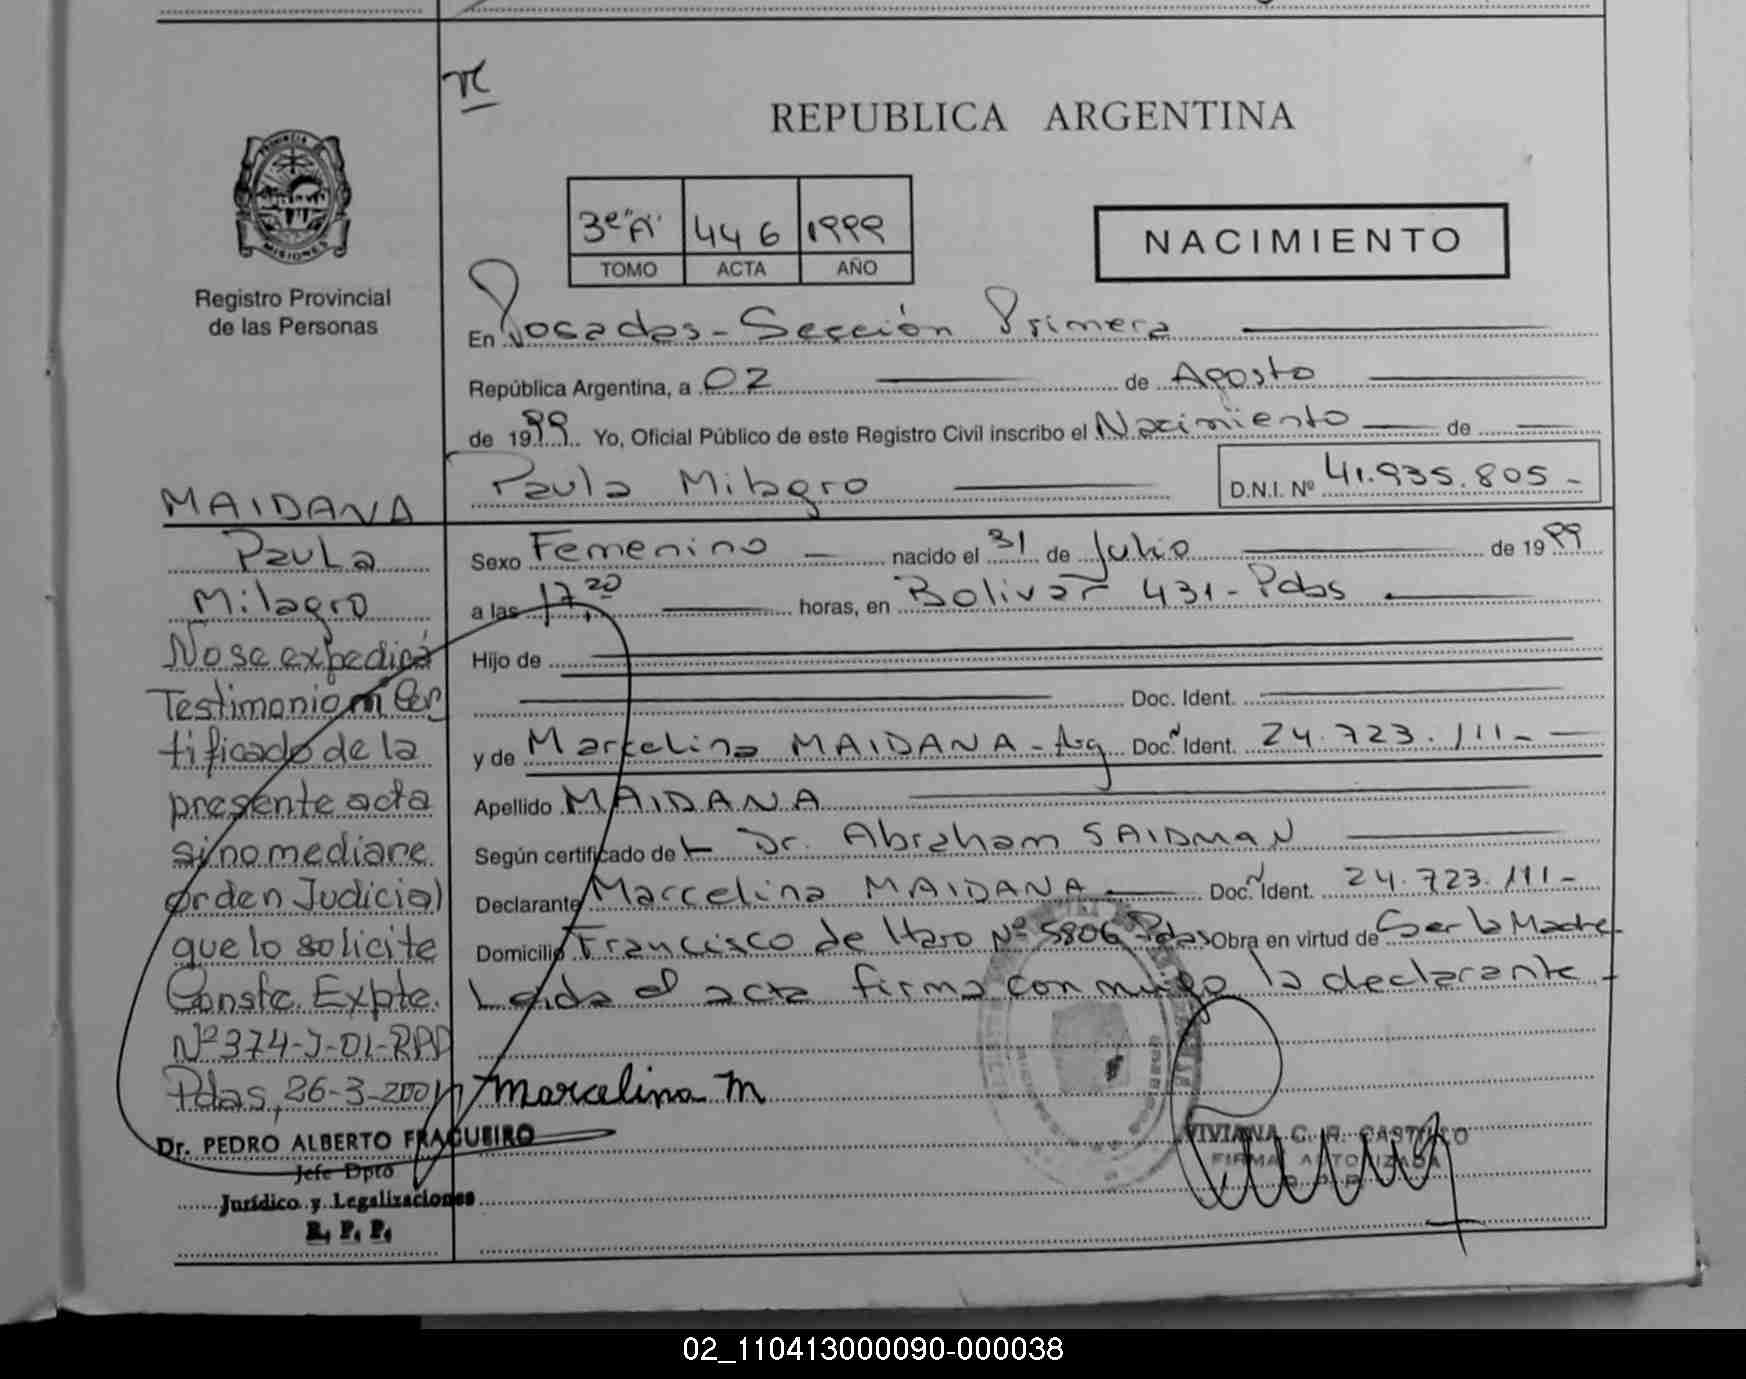 π
REPUBLICA ARGENTINA
PROVINCIA DE
MISIONES
Registro Provincial
de las Personas
3º "A" 446 1999
TOMO ACTA AÑO
NACIMIENTO
En Posadas - Sección Primera
República Argentina, a 02 de Agosto
de 1999. Yo, Oficial Público de este Registro Civil inscribo el Nacimiento de
Paula Milagro D.N.I. Nº 41.935.805 -
Sexo Femenino nacido el 31 de Julio de 1999
a las 17,20 horas, en Bolivar 431 - Pdas
Hijo de
Doc. Ident.
y de Marcelina MAIDANA - Arg Doc. Ident. 24.723.111 -
Apellido MAIDANA
Según certificado de Dr. Abraham SAIDMAN
Declarante Marcelina MAIDANA Doc. Ident. 24.723.111 -
Domicilio Francisco de Haro Nº 5806 Pdas Obra en virtud de Ser la Madre
Leida el acta firma conmigo la declarante -
Marcelina M
VIVIANA C. R. CASTILLO
FIRMA AUTORIZADA
R. P. P.
MAIDANA
Paula
Milagro
No se expedirá
Testimonio ni Cer
tificado de la
presente acta
si no mediare
orden Judicial
que lo solicite
Conste. Expte.
Nº 374-J-01-RPP
Pdas, 26-3-2001
Dr. PEDRO ALBERTO FRAGUEIRO
Jefe Dpto
Jurídico y Legalizaciones
R. P. P.
02_110413000090-000038